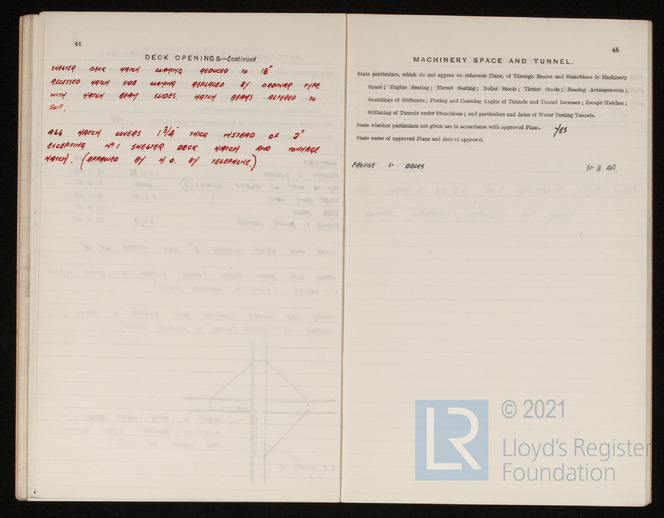 44
DECK OPENINGS—Continued
SHELTER DECK HATCH COAMING REDUCED TO 18"
RECESSED HATCH SIDE COAMING REPLACED BY ORDINARY TYPE
WITH HATCH BEAM SLIDES. HATCH BEAMS ALTERED TO
SUIT.
ALL HATCH COVERS 1 3/4" THICK INSTEAD OF 2"
EXCEPTING Nº1 SHELTER DECK HATCH AND TONNAGE
HATCH. (APPROVED BY H.O. BY TELEPHONE.)
45
MACHINERY SPACE AND TUNNEL.
State particulars, which do not appear on reference Plans, of Through Beams and Stanchions in Machinery
Space; Engine Seating; Thrust Seating; Boiler Stools; Thrust Stools; Housing Arrangements;
Scantlings of Stiffeners; Plating and Coaming Angles of Tunnels and Tunnel Recesses; Escape Hatches;
Stiffening of Tunnels under Stanchions; and particulars and dates of Water Testing Tunnels.
State whether particulars not given are in accordance with approved Plans. YES
State name of approved Plans and date of approval.
PROFILE & DECKS
LR
© 2021
Lloyd's Register
Foundation